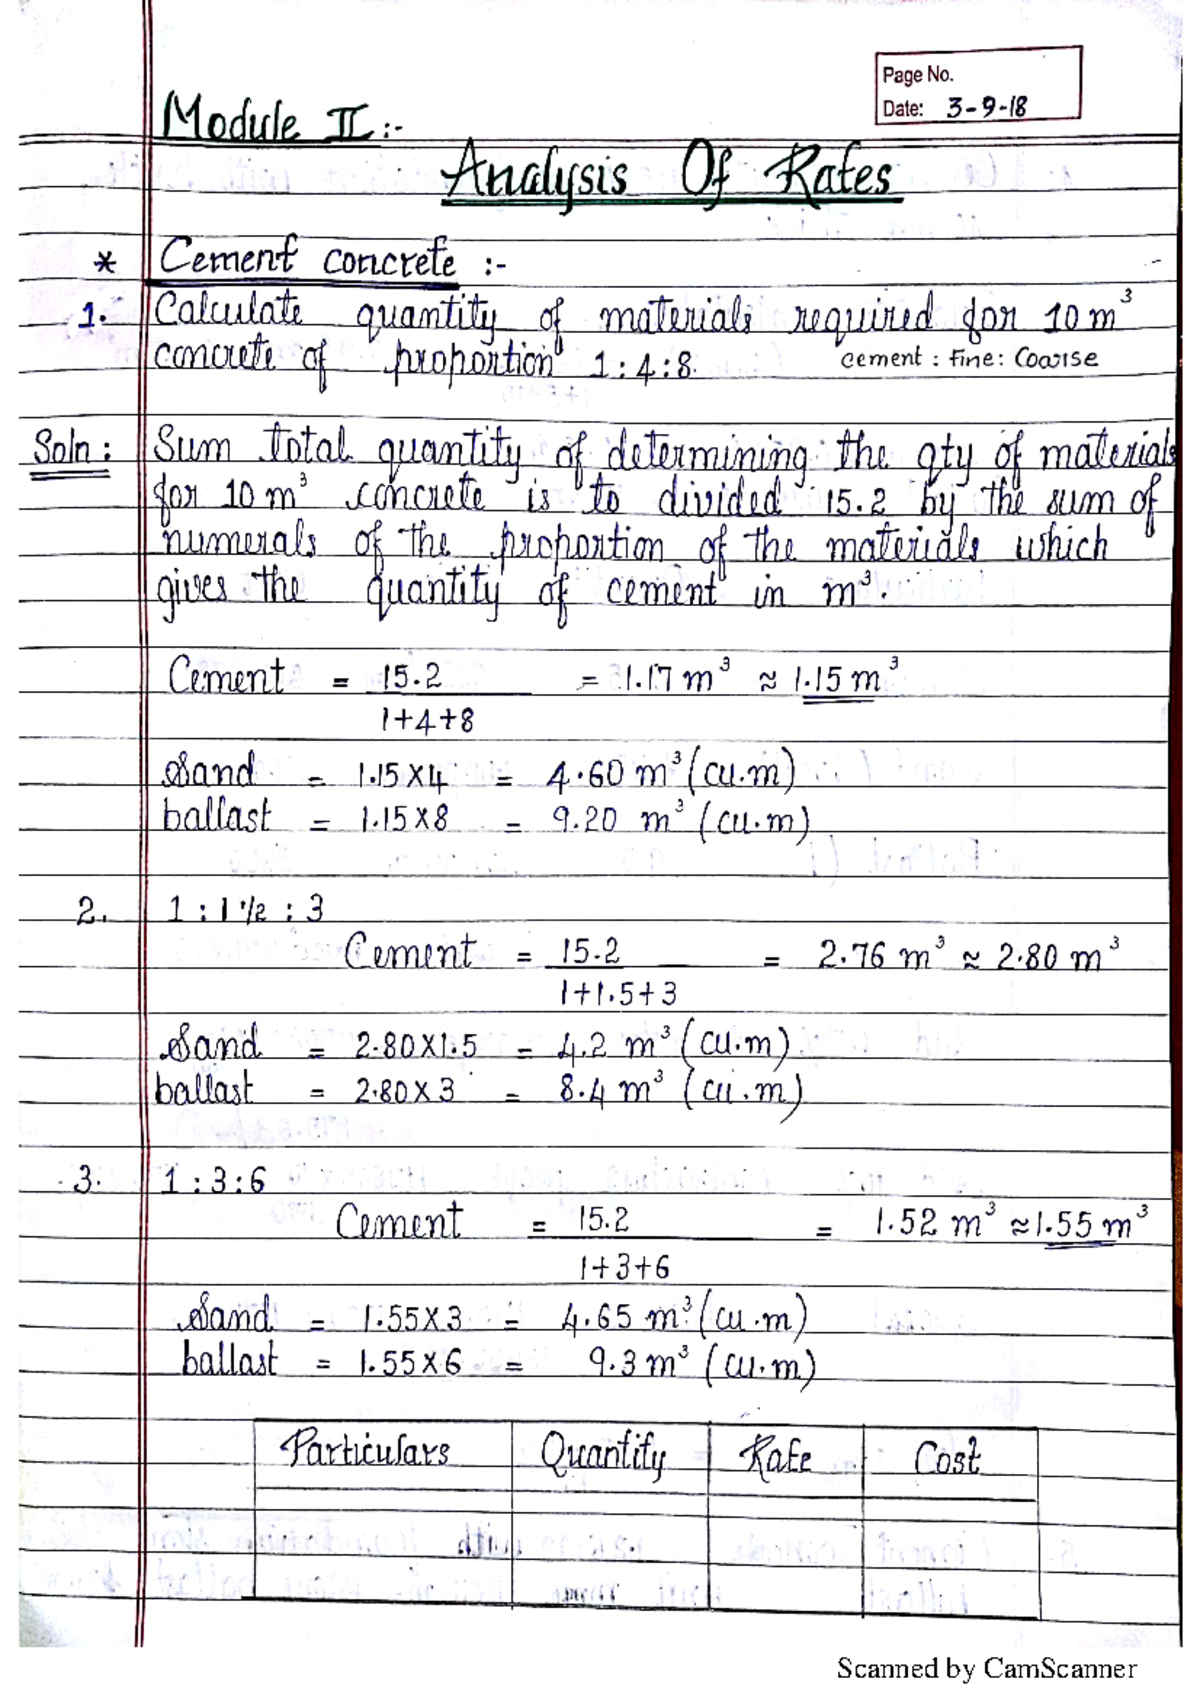 Page No.
Date: 3-9-18
Module II :-
Analysis Of Rates
* Cement concrete :-
1. Calculate quantity of materials required for 10 m³
concrete of proportion 1 : 4 : 8. cement : Fine : Coarse
Soln : Sum total quantity of determining the qty of materials
for 10 m³ concrete is to divided 15.2 by the sum of
numerals of the proportion of the materials which
gives the quantity of cement in m³.
Cement = 15.2 = 1.17 m³ ≈ 1.15 m³
1+4+8
Sand = 1.15 X 4 = 4.60 m³ (cu.m)
ballast = 1.15 X 8 = 9.20 m³ (cu.m)
2. 1 : 1 1/2 : 3
Cement = 15.2 = 2.76 m³ ≈ 2.80 m³
1+1.5+3
Sand = 2.80 X 1.5 = 4.2 m³ (cu.m)
ballast = 2.80 X 3 = 8.4 m³ (cu.m)
3. 1 : 3 : 6
Cement = 15.2 = 1.52 m³ ≈ 1.55 m³
1+3+6
Sand = 1.55 X 3 = 4.65 m³ (cu.m)
ballast = 1.55 X 6 = 9.3 m³ (cu.m)
Particulars Quantity Rate Cost
Scanned by CamScanner